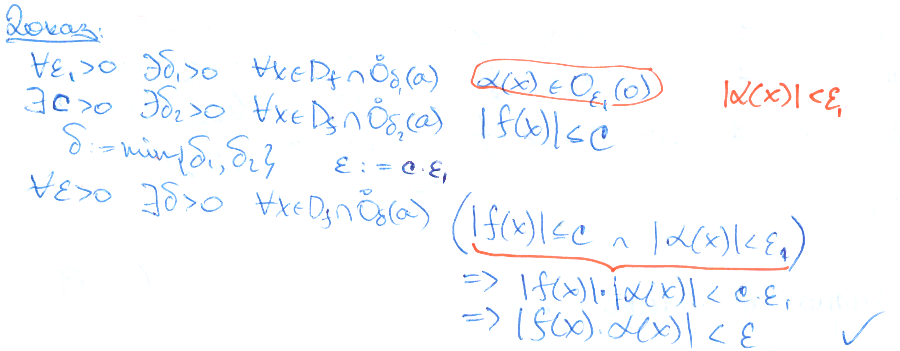 Доказ:
∀ε₁>0 ∃δ₁>0 ∀x∈D_f ∩ O̊_δ₁(a) α(x) ∈ O_ε₁(0) |α(x)| < ε₁
∃C>0 ∃δ₂>0 ∀x∈D_f ∩ O̊_δ₂(a) |f(x)| ≤ C
δ := min{δ₁, δ₂} ε := C·ε₁
∀ε>0 ∃δ>0 ∀x∈D_f ∩ O̊_δ(a) (|f(x)| ≤ C ∩ |α(x)| < ε₁)
=> |f(x)|·|α(x)| < C·ε₁
=> |f(x)·α(x)| < ε ✓